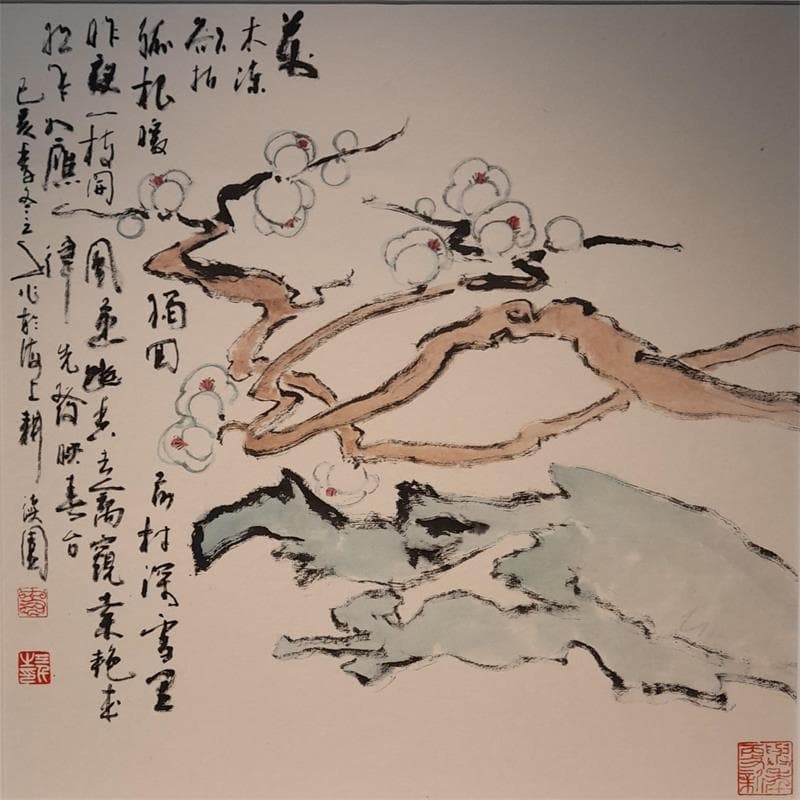 萬
木凍
欲折
孤根暖獨回前村深雪里
昨夜一枝開風遞幽香去禽窺素艳来
年如應律先發映春台
己亥季冬立人作於海上耕讀園